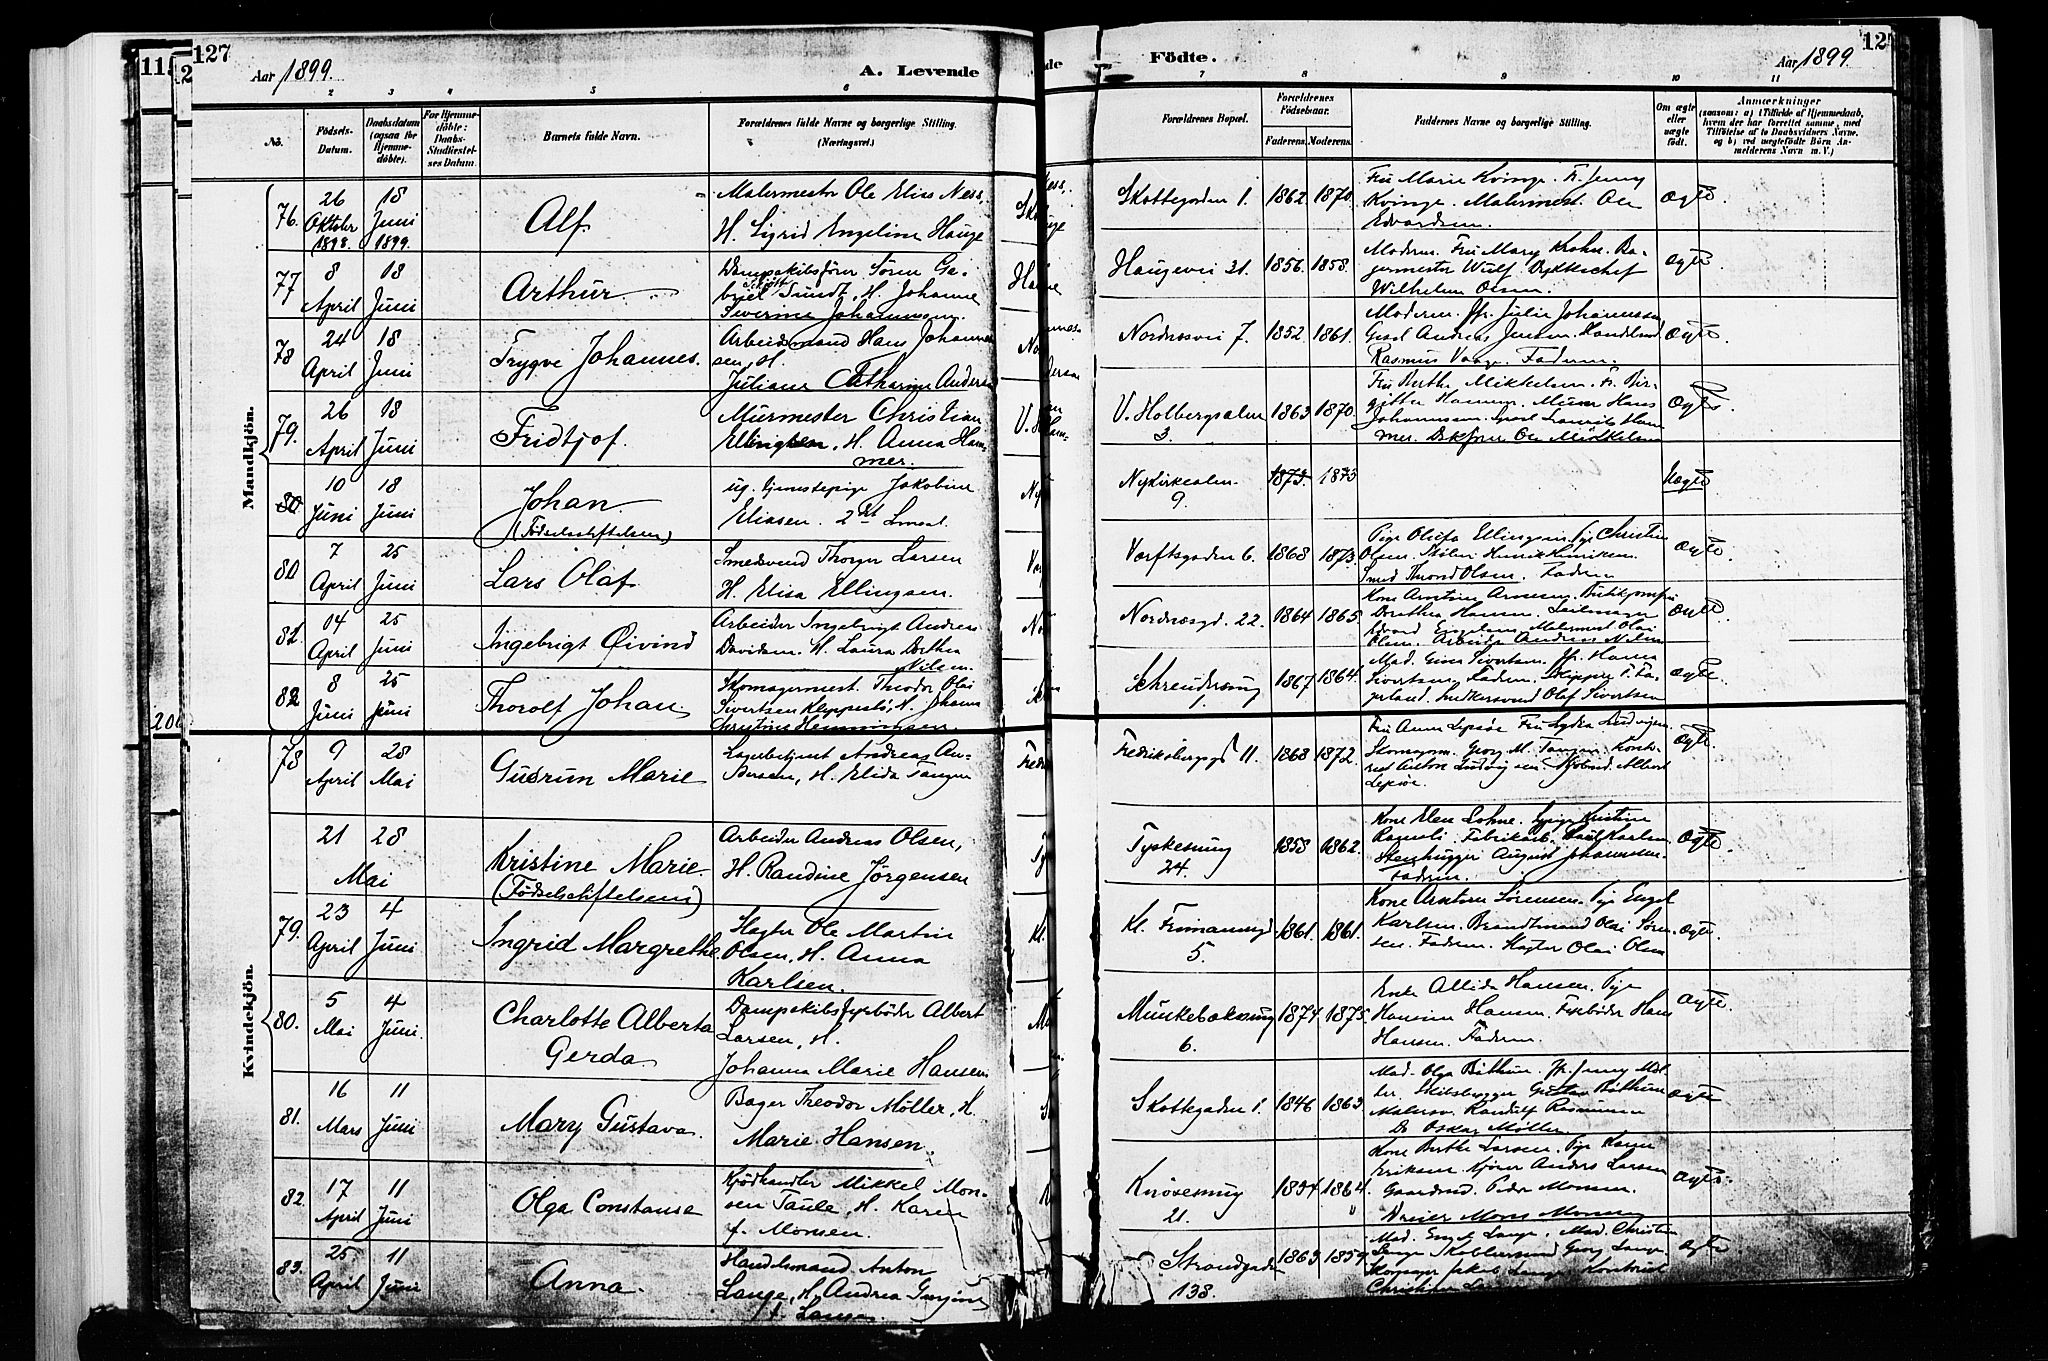 127
Aar 1899.
A. Levende
Födte.
Aar 1899
12
115
2
2 3 4 5 6
7 8 9 10 11
No.
Födsels-
Datum.
Daabsdatum
(ogsaa for
Hjemme-
döbte).
For Hjemme-
döbte:
Daabs-
Stadfæstel-
ses Datum.
Barnets fulde Navn.
Forældrenes fulde Navne og borgerlige Stilling.
(Næringsvei.)
Forældrenes Bopæl.
Forældrenes
Födselsaar.
Faderens. Moderens.
Faddernes Navne og borgerlige Stilling.
Om ægte
eller
uægte
födt.
Anmærkninger
(saasom: a) i Tilfælde af Hjemmedaab,
hvem der har forrettet samme, med
Tilföielse af to Daabsvidners Navne,
og b) ved uægtefödte Börn An-
melderens Navn m. V.)
Mandkjön.
76. 26 Oktober 1898. 18 Juni 1899. Alf
Malermester Ole Elias Ness,
H. Sigrid Engeline Hauge
Skottegaden 1. 1862. 1870.
Fru Marie Kvinge. Fr. Jenny
Kvinge. Malermest. Ole
Edvardsen.
Ægte.
77 8 April 18 Juni Arthur.
Dampskibsförer Sören Ga-
briel Sundt, H. Johanne
Severine Johannesen.
Haugevei 21. 1856. 1858.
Moderen. Fru Mary Krohn. Ba-
germester Wulf.
Wilhelm Olsen.
Ægte
78 24 April 18 Juni Trygve Johannes.
Arbeidsmand Hans Johannes-
sen, H.
Juliane Catharine Andersen
Nordnesvei 7. 1852. 1861.
Moderen. Jfr. Julie Johannessen
Andreas Jensen. Handelsmd
Rasmus Vaage. Faderen.
Ægte.
79. 26 April 18 Juni Fridtjof.
Murmester Christian
Ellingsen, H. Anna Ham-
mer.
V. Holbergsalm 3. 1863 1870.
Fru Berthe Mikkelsen. Fr. Bir-
gitte Hansen. Murer Hans
Johannesen.
mer. Ole Mikkelsen
Ægte.
80. 10 Juni 18 Juni Johan.
(Födselsstiftelsen)
ug. tjenestepige Jakobine
Eliasen. 2det Lmaal.
Nykirkealm. 9. 1873. 1873
Uægte
80 7 April 25 Juni Lars Olaf.
Smedsvend Thorger Larsen
H. Elisa Ellingsen.
Værftsgaden 6. 1868 1873.
Pige Olufa Ellingsen. Pige Christine
Olsen. Henrik Henriksen.
Smed Thrond Olsen. Faderen
Ægte.
81. 14 April 25 Juni Ingebrigt Øivind
Arbeider Ingebrigt Andreas
Davidsen. H. Laura Dorthea
Nilsen.
Nordnæsgd. 22. 1864 1865
Dorthea Hansen.
Edvard Malermest Olai
Olsen. Arbeider Andreas Nilsen
Ægte.
82 8 Juni 25 Juni Thorolf Johan.
Skomagermest. Theodor Olai
Sivertsen Kleppestø, H. Johanne
Christine Henningsen.
Schreudersmug 1867 1864.
Mad. Sivertsen. Jfr. Hanna
Sivertsen. Faderen. Skipper
Olaf Sivertsen
Ægte.
200
Kvindekjön.
78 9 April 28 Mai Gudrun Marie
Lagerbetjent Andreas An-
dersen, H. Elida Tangen
Fredriksbergsgd 11. 1868 1872.
Fru Anna Lepsøe Fru Lydia Ludvigsen
Skomagerm. Georg M. Tangen. Konto-
rist Anton Ludvigsen. Albert
Lepsøe.
Ægte.
21 28 Mai Kristine Marie.
(Födselsstiftelsen)
Arbeider Andreas Olsen,
H. Randine Jørgensen
Tyskesmug 24. 1858 1862.
Kone Elen Lohne. Kristine
Fabrikarb. Karlsen
Stenhugger August Johannesen.
Faderen.
Ægte.
79. 23 April 4 Juni Ingrid Margrethe.
Slagter Ole Martin
Olsen, H. Anna
Karlsen.
Kl. Frimannsgd 5. 1861. 1861.
Kone Sørensen. Pige Engel
Karlsen. Brandtmand Olai Sören-
sen. Faderen. Slagter Olai Olsen
Ægte.
80. 5 Mai 4 Juni. Charlotte Alberta
Gerda
Dampskibsfyrbøder Albert
Larsen, H.
Johanna Marie Hansen
Munkebæksmug 6. 1874 1875.
Enke Allida Hansen. Pige
Hansine Hansen. Fyrbøder Hans
Hansen. Faderen.
Ægte.
81. 16 Mars 11 Juni Mary Gustava.
Bager Theodor Möller, H.
Marie Hansen.
Skottegaden 1. 1846 1863.
Mad. Olga Böthun. Jfr. Jenny Møl-
ler. Skibsbygger Gustav Böthun
Malersv. Randulf Rasmussen
Do Oskar Møller.
Ægte
82. 17 April 11 Juni Olga Constanse
Kjödhandler Mikkel Mon-
sen Taule, H. Karen
f. Monsen.
Knösesmug 21. 1854 1864.
Kone Berthe Larsen. Pige Karen
Eriksen. Anders Larsen
Gaardmd. Peder Monsen.
Dreier Mons Monsen
Ægte.
83. 25 April 11 Juni Anna.
Handelsmand Anton
Lange, H. Andrea
f. Larsen.
Strandgaden 138. 1863 1859.
Mad. Engel Lange. Mad. Christine
Lange Georg Lange.
Skomager Jakob Lange Kontorist
Christian
Ægte